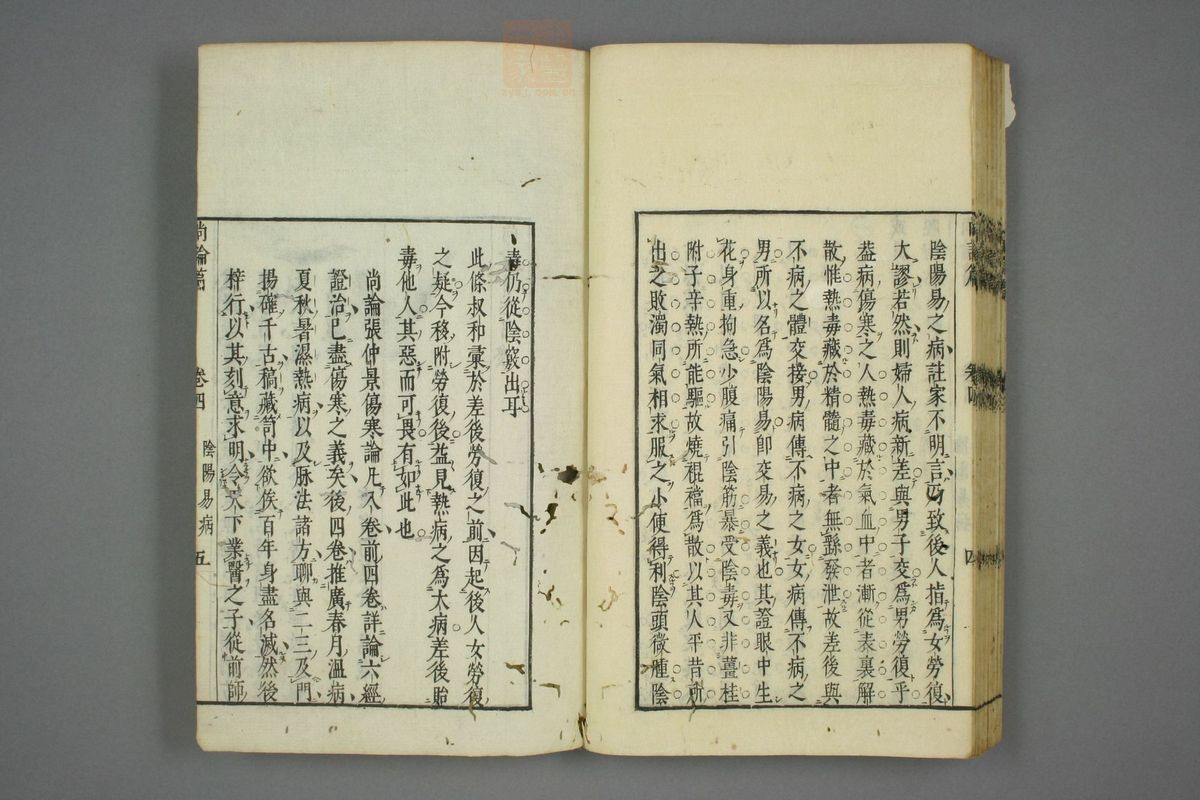 陰陽易之病註家不明言乃致後人指爲女勞復
大謬若然則婦人病新差與男子交爲男勞復乎
葢病傷寒之人熱毒藏於氣血中者漸從表裏解
散惟熱毒藏於精髓之中者無繇發泄故差後與
不病之體交接男病傳不病之女女病傳不病之
男所以名爲陰陽易卽交易之義也其證眼中生
花身重拘急少腹痛引陰筋暴受陰毒又非薑桂
附子辛熱所能驅故燒裩襠爲散以其人平昔所
出之敗濁同氣相求服之小便得利陰頭微腫陰
毒仍從陰竅出耳
此條叔和彙於差後勞復之前因起後人女勞復
之疑今移附勞復後益見熱病之爲大病差後貽
毒他人其惡而可畏有如此也
尚論張仲景傷寒論凡八卷前四卷詳論六經
證治已盡傷寒之義矣後四卷推廣春月溫病
夏秋暑濕熱病以及脉法諸方聊與二三及門
揚確千古稿藏笥中欲俟百年身盡名滅然後
梓行以其刻意求明令天下業醫之子從前師
尚論篇 卷四 陰陽易病 五